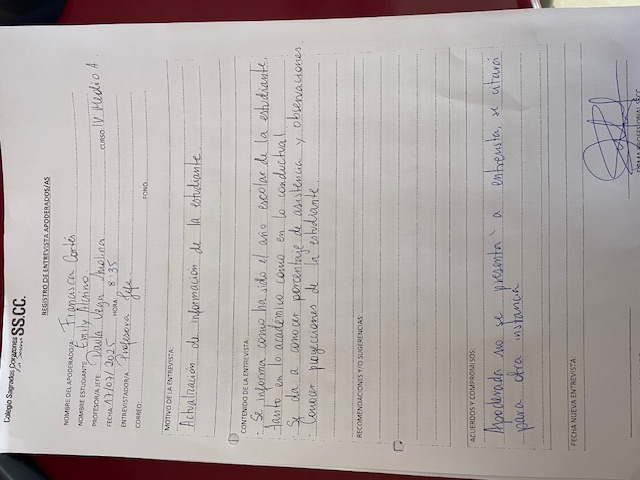 Colegio Sagrados Corazones SS.CC.
REGISTRO DE ENTREVISTA APODERADOS/AS
NOMBRE DEL APODERADO/A: Francisca Cortés
NOMBRE ESTUDIANTE: Emily Merino
PROFESOR/A JEFE: Paula Vega Molina CURSO: IV Medio A.
FECHA: 17/07/2025 HORA: 8:35
ENTREVISTADOR/A: Profesora Jefe
CORREO: FONO:
MOTIVO DE LA ENTREVISTA:
Actualización de información de la estudiante.
CONTENIDO DE LA ENTREVISTA:
· Se informa como ha sido el año escolar de la estudiante,
tanto en lo académico como en lo conductual
· Se da a conocer porcentaje de asistencia y observaciones.
· Conocer proyecciones de la estudiante.
RECOMENDACIONES Y/O SUGERENCIAS:
ACUERDOS Y COMPROMISOS:
Apoderada no se presenta a entrevista, se citará
para otra instancia
FECHA NUEVA ENTREVISTA: